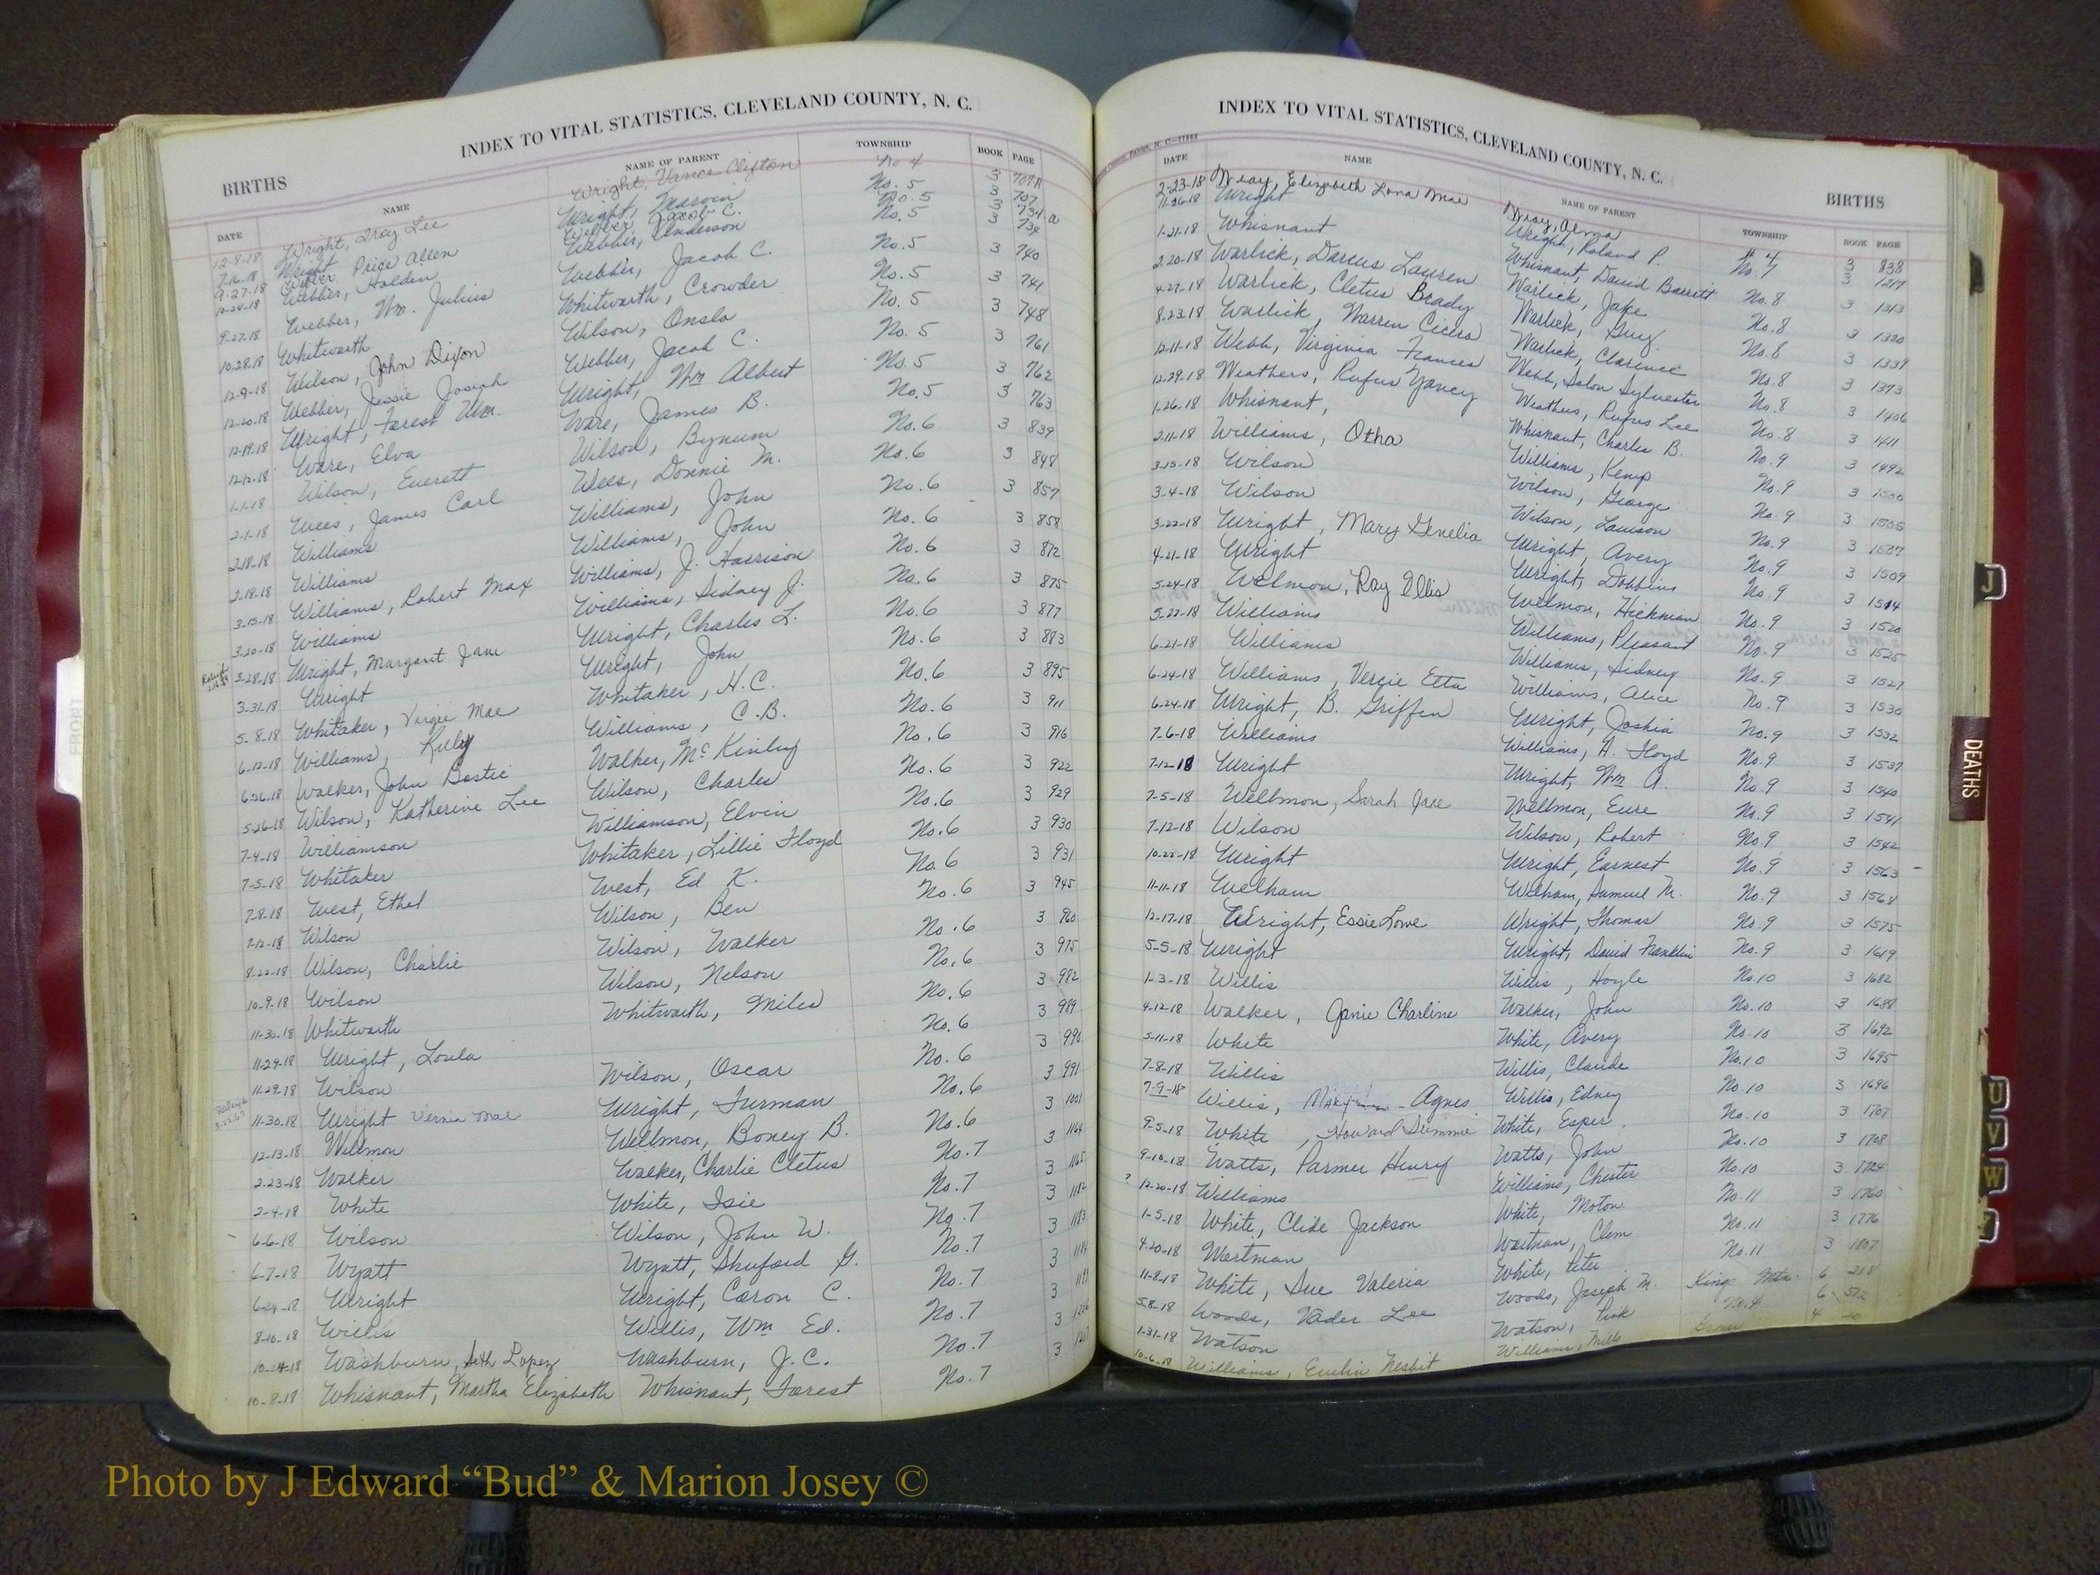 INDEX TO VITAL STATISTICS, CLEVELAND COUNTY, N. C.
BIRTHS
DATE NAME NAME OF PARENT TOWNSHIP BOOK PAGE
12-8-18 Wright, Dray Lee Wright, Vance Clifton No 4 3 707A
7-16-18 Wright Wright, Marvin No. 5 3 707
9-27-18 Webber, Price Allen Webber, Jacob C. No. 5 3 734 a
10-24-18 Webber, Holden Webber, Anderson No. 5 3 734
9-27-18 Webber, Wm. Julius Webber, Jacob C. No. 5 3 740
10-28-18 Whitworth Whitworth, Crowder No. 5 3 741
12-9-18 Wilson, John Dixon Wilson, Onslo No. 5 3 748
12-20-18 Webber, Jessie Josiah Webber, Jacob C. No. 5 3 761
12-19-18 Wright, Forest Wm. Wright, Wm Albert No. 5 3 762
12-12-18 Ware, Elva Ware, James B. No. 5 3 763
1-1-18 Wilson, Everett Wilson, Bynum No. 6 3 839
2-1-18 Wees, James Carl Wees, Donnie M. No. 6 3 848
2-18-18 Williams Williams, John No. 6 3 857
2-18-18 Williams Williams, John No. 6 3 858
3-15-18 Williams, Robert Max Williams, J. Harrison No. 6 3 872
3-20-18 Williams Williams, Sidney J. No. 6 3 875
3-28-18 Wright, Margaret Jane Wright, Charles L. No. 6 3 877
3-31-18 Wright Wright, John No. 6 3 883
5-8-18 Whitaker, Virgie Mae Whitaker, H.C. No. 6 3 895
6-12-18 Williams, Ruby Williams, C.B. No. 6 3 911
6-26-18 Walker, John Bostic Walker, McKinley No. 6 3 916
5-26-18 Wilson, Katherine Lee Wilson, Charles No. 6 3 922
7-4-18 Williamson Williamson, Elvin No. 6 3 929
7-5-18 Whitaker Whitaker, Lillie Floyd No. 6 3 930
7-8-18 West, Ethel West, Ed K. No. 6 3 931
7-12-18 Wilson Wilson, Ben No. 6 3 945
8-22-18 Wilson, Charlie Wilson, Walker No. 6 3 960
10-9-18 Wilson Wilson, Nelson No. 6 3 975
11-30-18 Whitworth Whitworth, Miles No. 6 3 982
11-29-18 Wright, Loula No. 6 3 989
11-29-18 Wilson Wilson, Oscar No. 6 3 990
11-30-18 Wright Vernia Mae Wright, Furman No. 6 3 991
12-13-18 Wellmon Wellmon, Boney B. No. 6 3 1001
2-23-18 Walker Walker, Charlie Cletus No. 7 3 1164
2-4-18 White White, Isie No. 7 3 1165
6-6-18 Wilson Wilson, John W. No. 7 3 1182
6-7-18 Wyatt Wyatt, Shuford G. No. 7 3 1183
6-24-18 Wright Wright, Caron C. No. 7 3
8-10-18 Willis Willis, Wm Ed. No. 7 3
10-24-18 Washburn, Seth Lopez Washburn, J.C. No. 7 3
10-8-18 Whisnant, Martha Elizabeth Whisnant, Forest No. 7 3
INDEX TO VITAL STATISTICS, CLEVELAND COUNTY, N. C.
BIRTHS
DATE NAME NAME OF PARENT TOWNSHIP BOOK PAGE
2-23-18 Wray, Elizabeth Lona Mae Wray, Alma # 4 3 838
11-26-18 Wright Wright, Roland P. No. 7 3 1217
1-21-18 Whisnant Whisnant, David Barrett No. 8 3 1313
2-20-18 Warlick, Darcus Lauren Warlick, Jake No. 8 3 1320
4-27-18 Warlick, Cletus Brady Warlick, Guy No. 8 3 1339
8-23-18 Warlick, Warren Cicero Warlick, Clarence No. 8 3 1393
12-11-18 Webb, Virginia Frances Webb, Solon Sylvester No. 8 3 1406
12-29-18 Weathers, Rufus Yancey Weathers, Rufus Lee No. 8 3 1411
1-26-18 Whisnant, Whisnant, Charles B. No. 9 3 1492
2-11-18 Williams, Otha Williams, Kemp No. 9 3 1500
3-15-18 Wilson Wilson, George No. 9 3 1505
3-4-18 Wilson Wilson, Lawson No. 9 3 1507
3-22-18 Wright, Mary Genelia Wright, Avery No. 9 3 1509
4-21-18 Wright Wright, Dobbins No. 9 3 1514
5-24-18 Welmon, Ray Ellis Welmon, Hickman No. 9 3 1520
5-22-18 Williams Williams, Pleasant No. 9 3 1525
6-21-18 Williams Williams, Sidney No. 9 3 1527
6-24-18 Williams, Vergie Etta Williams, Alice No. 9 3 1530
6-24-18 Wright, B. Griffen Wright, Joshia No. 9 3 1532
7-6-18 Williams Williams, A. Floyd No. 9 3 1537
7-12-18 Wright Wright, Wm A. No. 9 3 1540
7-5-18 Wellmon, Sarah Jane Wellmon, Eure No. 9 3 1541
7-12-18 Wilson Wilson, Robert No. 9 3 1542
10-22-18 Wright Wright, Earnest No. 9 3 1563
11-11-18 Welham Welham, Samuel M. No. 9 3 1568
12-17-18 Wright, Essie Lowe Wright, Thomas No. 9 3 1575
5-5-18 Wright Wright, David Franklin No. 9 3 1619
1-3-18 Willis Willis, Hoyle No. 10 3 1682
4-12-18 Walker, Janie Charline Walker, John No. 10 3 1688
5-11-18 White White, Avery No. 10 3 1692
7-8-18 Willis Willis, Claude No. 10 3 1695
7-9-18 Willis, Agnes Willis, Edney No. 10 3 1696
9-5-18 White, Howard Simmie White, Esper No. 10 3 1707
9-10-18 Watts, Parmer Henry Watts, John No. 10 3 1708
? 12-20-18 Williams Williams, Chester No. 10 3 1724
1-5-18 White, Clide Jackson White, Moton No. 11 3 1760
4-20-18 Wortman Wortman, Clem No. 11 3 1776
11-8-18 White, Sue Valeria White, Peter No. 11 3 1807
5-8-18 Woods, Vader Lee Woods, Joseph M. Kings Mtn. 6 218
1-31-18 Watson Watson, Pink No. 4 6 572
10-6-18 Williams, Evelin Nesbit Williams, Mills 4 20
J
DEATHS
U
V
W
Photo by J Edward “Bud” & Marion Josey ©